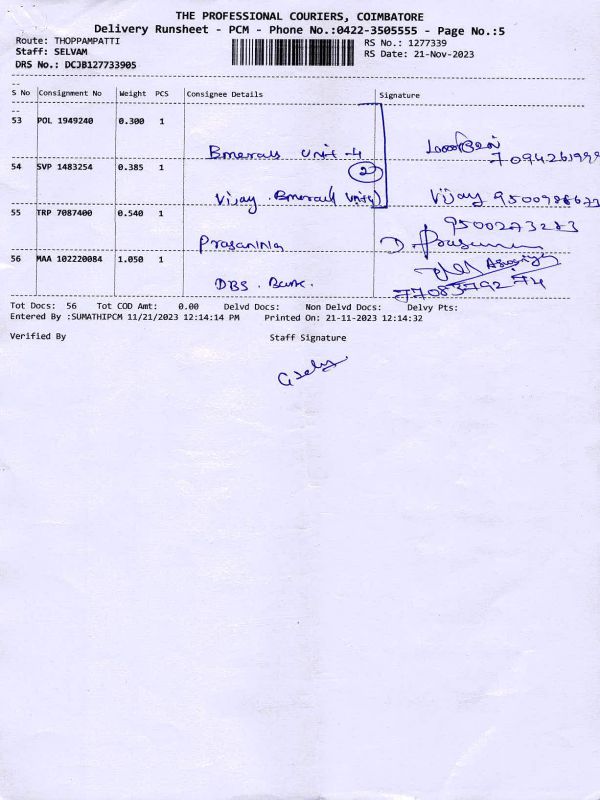 THE PROFESSIONAL COURIERS, COIMBATORE
Delivery Runsheet - PCM - Phone No.:0422-3505555 - Page No.:5
Route: THOPPAMPATTI RS No.: 1277339
Staff: SELVAM RS Date: 21-Nov-2023
DRS No.: DCJB127733905
S No Consignment No Weight PCS Consignee Details Signature
53 POL 1949240 0.300 1
Bmerals unit-4
54 SVP 1483254 0.385 1 2
Vijay. Vijay 9500988673
55 TRP 7087400 0.540 1 9500273283
Prasanna D.
56 MAA 102220084 1.050 1
DBS. Bank.
Tot Docs: 56 Tot COD Amt: 0.00 Delvd Docs: Non Delvd Docs: Delvy Pts:
Entered By :SUMATHIPCM 11/21/2023 12:14:14 PM Printed On: 21-11-2023 12:14:32
Verified By Staff Signature